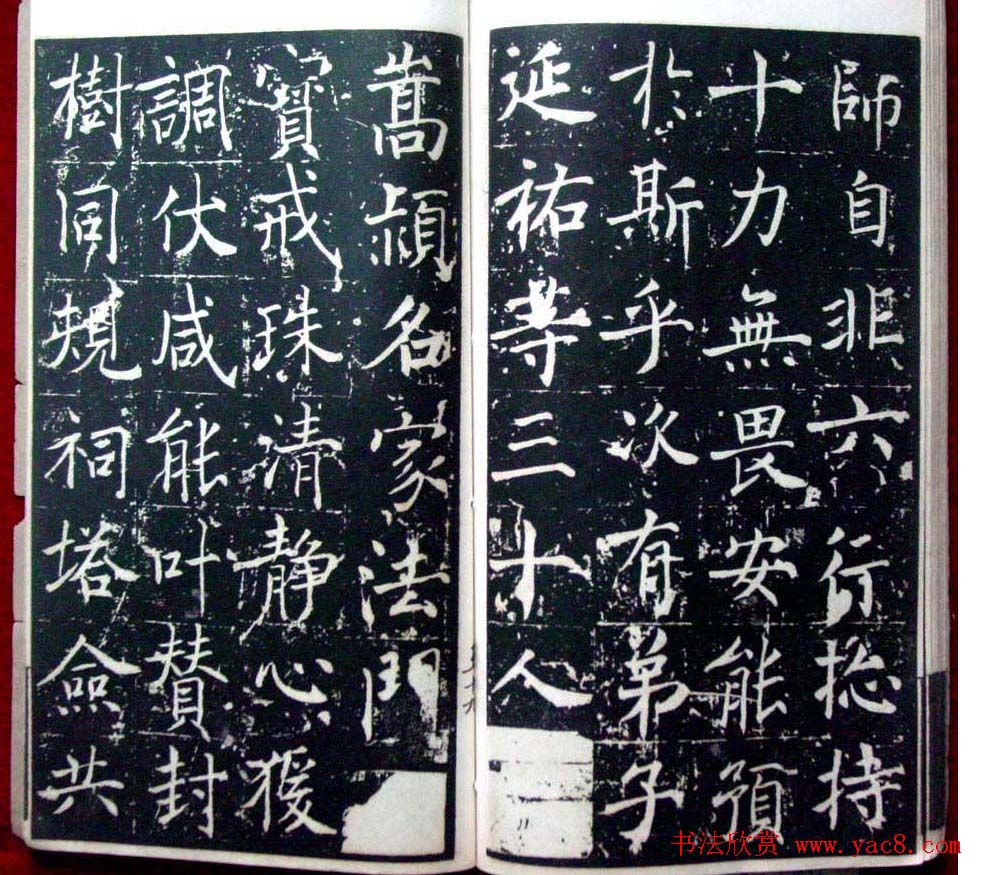 師自非六行揔持
十力無畏安能預
扵斯乎次有弟子
延祐等三十人
嵩潁名家法門
寶戒珠清静心猨
調伏咸能叶賛封
樹同䂓祠塔僉共
书法欣赏 www.yac8.com